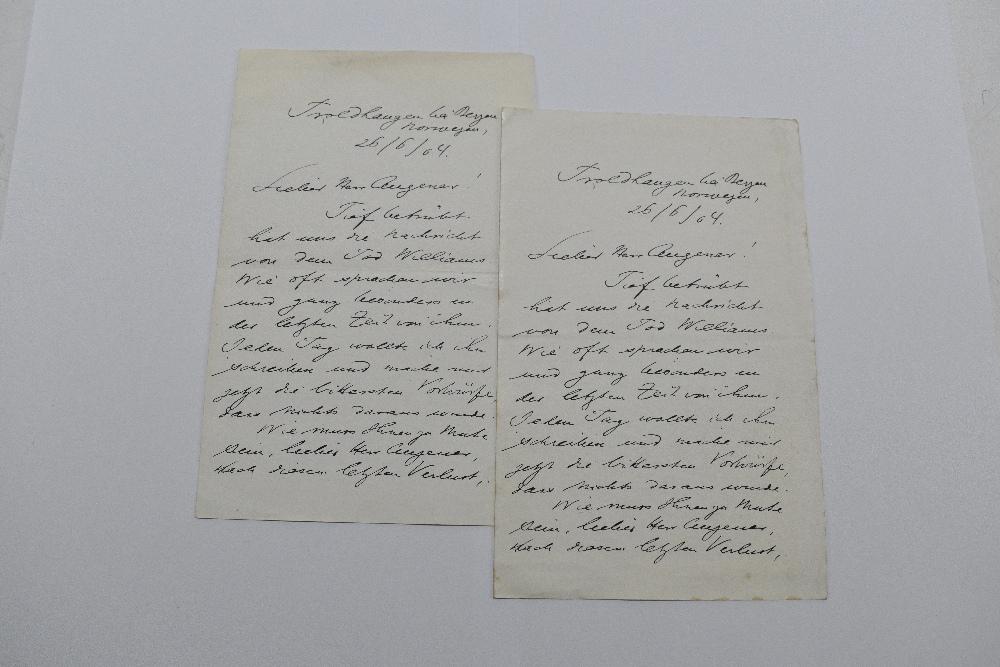 Troldhaugen bei Bergen
Norwegen,
26/6/04.
Lieber Herr Augener!
Tief betrübt
hat uns die Nachricht
von dem Tod Williams.
Wie oft sprachen wir
und ganz besonders in
der letzten Zeit von ihm.
Jeden Tag wollte ich ihm
schreiben und mache mir
jetzt die bittersten Vorwürfe,
dass nichts daraus wurde.
Wie muss Ihnen zu Mute
sein, lieber Herr Augener,
nach diesem letzten Verlust,
Troldhaugen bei Bergen
Norwegen,
26/6/04.
Lieber Herr Augener!
Tief betrübt
hat uns die Nachricht
von dem Tod Williams.
Wie oft sprachen wir
und ganz besonders in
der letzten Zeit von ihm.
Jeden Tag wollte ich ihm
schreiben und mache mir
jetzt die bittersten Vorwürfe,
dass nichts daraus wurde.
Wie muss Ihnen zu Mute
sein, lieber Herr Augener,
nach diesem letzten Verlust,